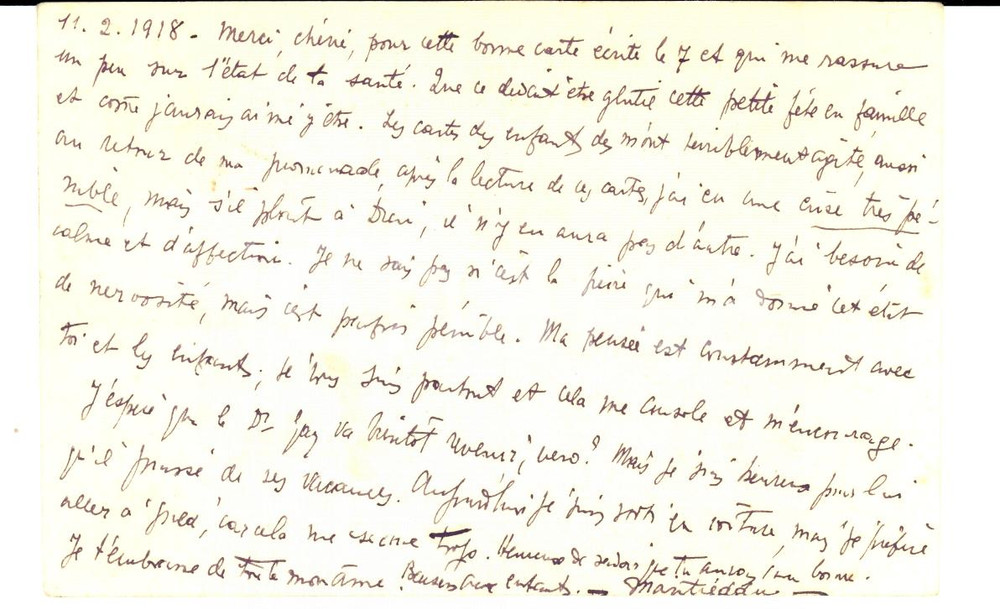 11.2.1918 - Merci, chéri, pour cette bonne carte écrite le 7 et qui me rassure
un peu sur l'état de ta santé. Que ce devait être cette petite fête en famille
et comme j'aurais aimé y être. Les cartes des enfants m'ont terriblement agité, aussi
au retour de ma promenade, après la lecture de ces cartes, j'ai eu une crise très pé-
nible, mais s'il plait à Dieu, il n'y en aura pas d'autre. J'ai besoin de
calme et d'affection. Je ne sais pas si c'est la qui m'a donné cet état
de nervosité, mais c'est parfois pénible. Ma pensée est constamment avec
toi et les enfants; je vous suis partout et cela me console et m'encourage.
J'espère que le Dr va bientôt revenir, Mais je suis heureux pour lui
qu'il de ses vacances. Aujourd'hui je suis sorti en voiture, mais je préfère
aller à pied, car cela me secoue trop. Heureux de que tu auras bonne.
Je t'embrasse de toute mon âme. Baisers aux enfants. -